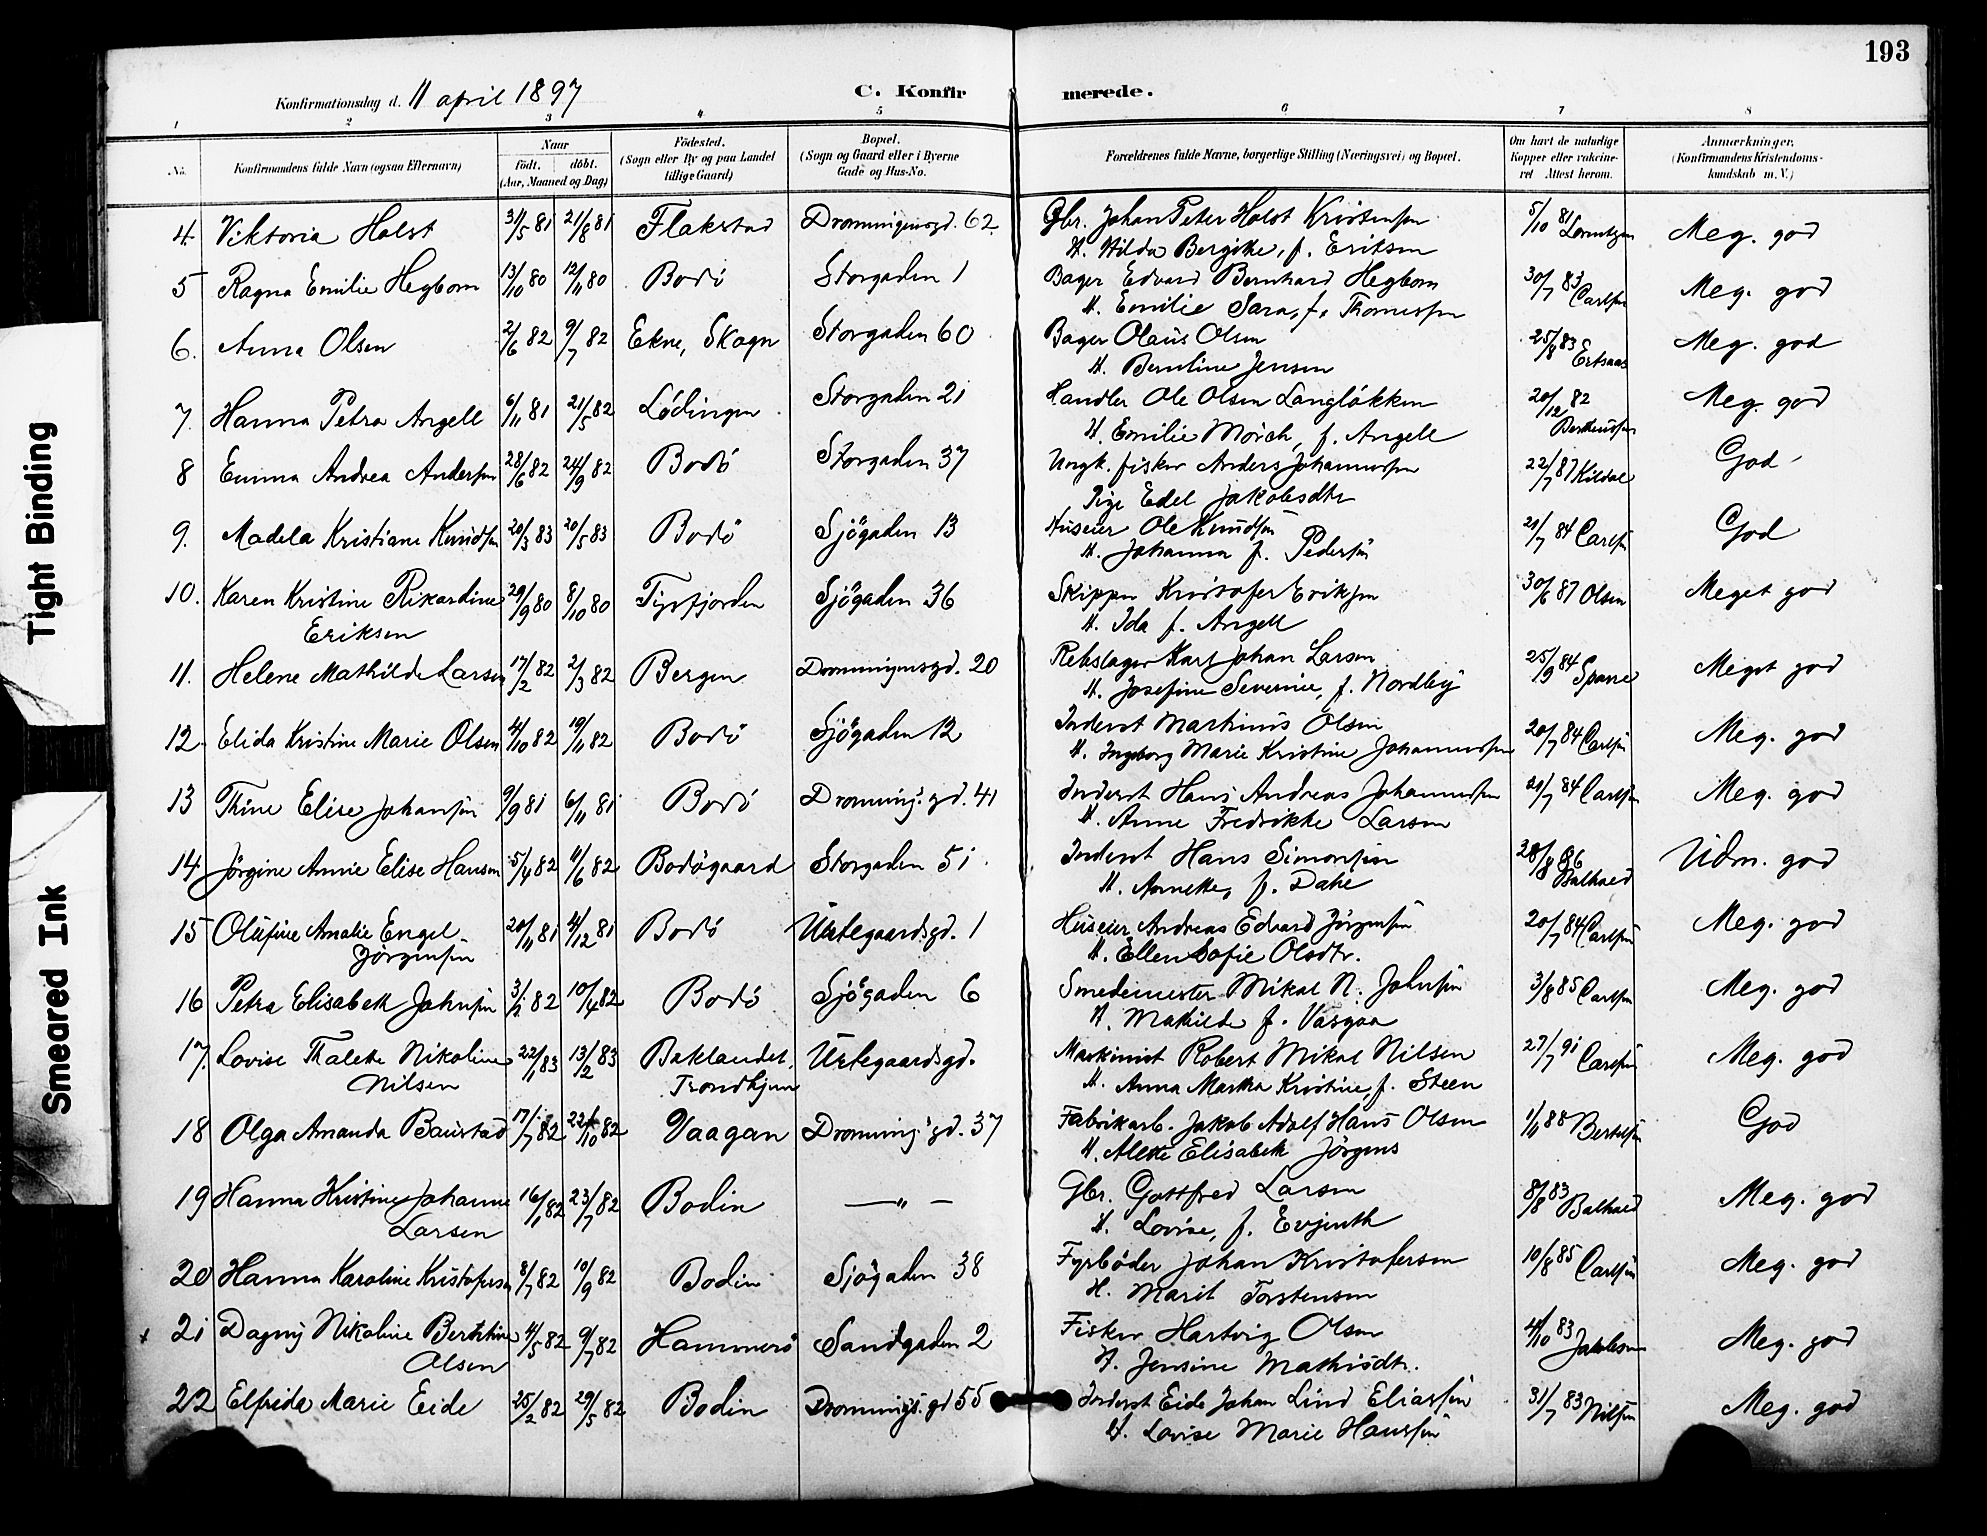 193
Konfirmationsdag d. 11 april 1897
C. Konfirmerede.
1 2 3 4 5 6 7 8
No. Konfirmandens fulde Navn (ogsaa Efternavn) Naar födt. döbt. (Aar, Maaned og Dag) Födested. (Sogn eller By og paa Landet tillige Gaard) Bopæl. (Sogn og Gaard eller i Byerne Gade og Hus-No. Forældrenes fulde Navne, borgerlige Stilling (Næringsvei) og Bopæl. Om havt de naturlige Kopper eller vakcineret Attest herom. Anmærkninger. (Konfirmandens Kristendomskundskab m. V.)
4. Viktoria Holst 31/5 81 21/8 81 Flakstad Dronningensgd. 62. Gbr. Johan Peter Holst Kristensen 5/10 81 Lorentzen Meg. god
H. Hilda Bergitte, f. Eriksen
5 Ragna Emilie Hegbom 13/10 80 12/11 80 Bodö Storgaden 1 Bager Edvard Bernhard Hegbom 30/7 83 Carlsen Meg. god
H. Emilie Sara, f. Thomessen
6. Anna Olsen 2/6 82 9/7 82 Ekne, Skogn Storgaden 60 Bager Olaus Olsen 25/8 83 Ertsaas Meg. god
H. Berntine Jensen
7. Hanna Petra Angell 6/11 81 21/5 82 Lödingen Storgaden 21 Handler Ole Olsen Langlökken 20/12 82 Meg. god
H. Emilie Mörch, f. Angell
8 Emma Andrea Andersen 28/6 82 24/9 82 Bodö Storgaden 37 Ungk. fisker Anders Johannessen 22/7 87 Kildal God
Pige Edel Jakobsdtr
9. Madela Kristiane Knudsen 20/3 83 20/5 83 Bodö Sjögaden 13 Huseier Ole Knudsen 21/7 84 Carlsen God
H. Johanna f. Pedersen
10. Karen Kristine Rikardine 29/9 80 8/10 80 Tysfjorden Sjögaden 36 Skipper Kristofer Eriksen 30/6 87 Olsen Meget god
Eriksen H. Ida f. Angell
11. Helene Mathilde Larsen 17/2 82 2/3 82 Bergen Dronningensgd. 20 Rebslager Karl Johan Larsen 25/9 84 Sparre Meget god
H. Josefine Severine, f. Nordby
12. Elida Kristine Marie Olsen 4/10 82 19/11 82 Bodö Sjögaden 12 Inderst Martinus Olsen 20/7 84 Carlsen Meg. god
H. Ingeborg Marie Kristine Johannessen
13 Thine Elise Johansen 9/9 81 6/11 81 Bodö Dronning. gd. 41 Inderst Hans Andreas Johannessen 21/7 84 Carlsen Meg. god
H. Anne Fredrikke Larsen
14 Jörgine Annie Elise Hansen 5/4 82 11/6 82 Bodögaard Storgaden 51 Inderst Hans Simonsen 28/8 86 Balhald Udm. god
H. Annette, f. Dahl
15 Olufine Amalie Engel 20/11 81 4/12 81 Bodö Urtegaardsgd. 1 Huseier Andreas Edvard Jörgensen 20/7 84 Carlsen Meg. god
Jörgensen H. Ellen Sofie Olsdtr.
16 Petra Elisabeth Johnsen 3/2 82 10/4 82 Bodö Sjögaden 6 Smedemester Mikal N. Johnsen 3/8 85 Carlsen Meg. god
H. Mathilde f. Vasgaa
17. Lovise Thalette Nikoline 22/1 83 13/2 83 Baklandet, Urtegaardsgd. Maskinist Robert Mikal Nilsen 27/7 91 Carlsen Meg. god
Nilsen Trondhjem H. Anna Martha Kristine, f. Steen
18 Olga Amanda Baustad 17/7 82 22/10 82 Vaagan Dronning. gd. 37 Fabrikarb. Jakob Adolf Hans Olsen 1/11 88 Bertelsen God
H. Alette Elisabeth Jörgens
19 Hanna Kristine Johanne 16/1 82 23/7 82 Bodin — " — Gbr. Gottfred Larsen 8/8 83 Balhald Meg. god
Larsen H. Lovise, f. Evjenth
20 Hanna Karoline Kristofersen 8/7 82 10/9 82 Bodin Sjögaden 38 Fyrböder Johan Kristofersen 10/8 85 Carlsen Meg. god
H. Marit Torstensen
21 Dagny Nikoline Berntine 4/5 82 9/7 82 Hammerö Sandgaden 2 Fisker Hartvig Olsen 4/10 83 Jakobsen Meg. god
Olsen H. Jensine Mathisdtr.
22 Elfrida Marie Eide 25/2 82 29/5 82 Bodin Dronnings. gd 55 Inderst Eide Johan Lind Eliassen 31/7 83 Nilsen Meg. god
H. Lovise Marie Hanssen
Tight Binding
Smeared Ink